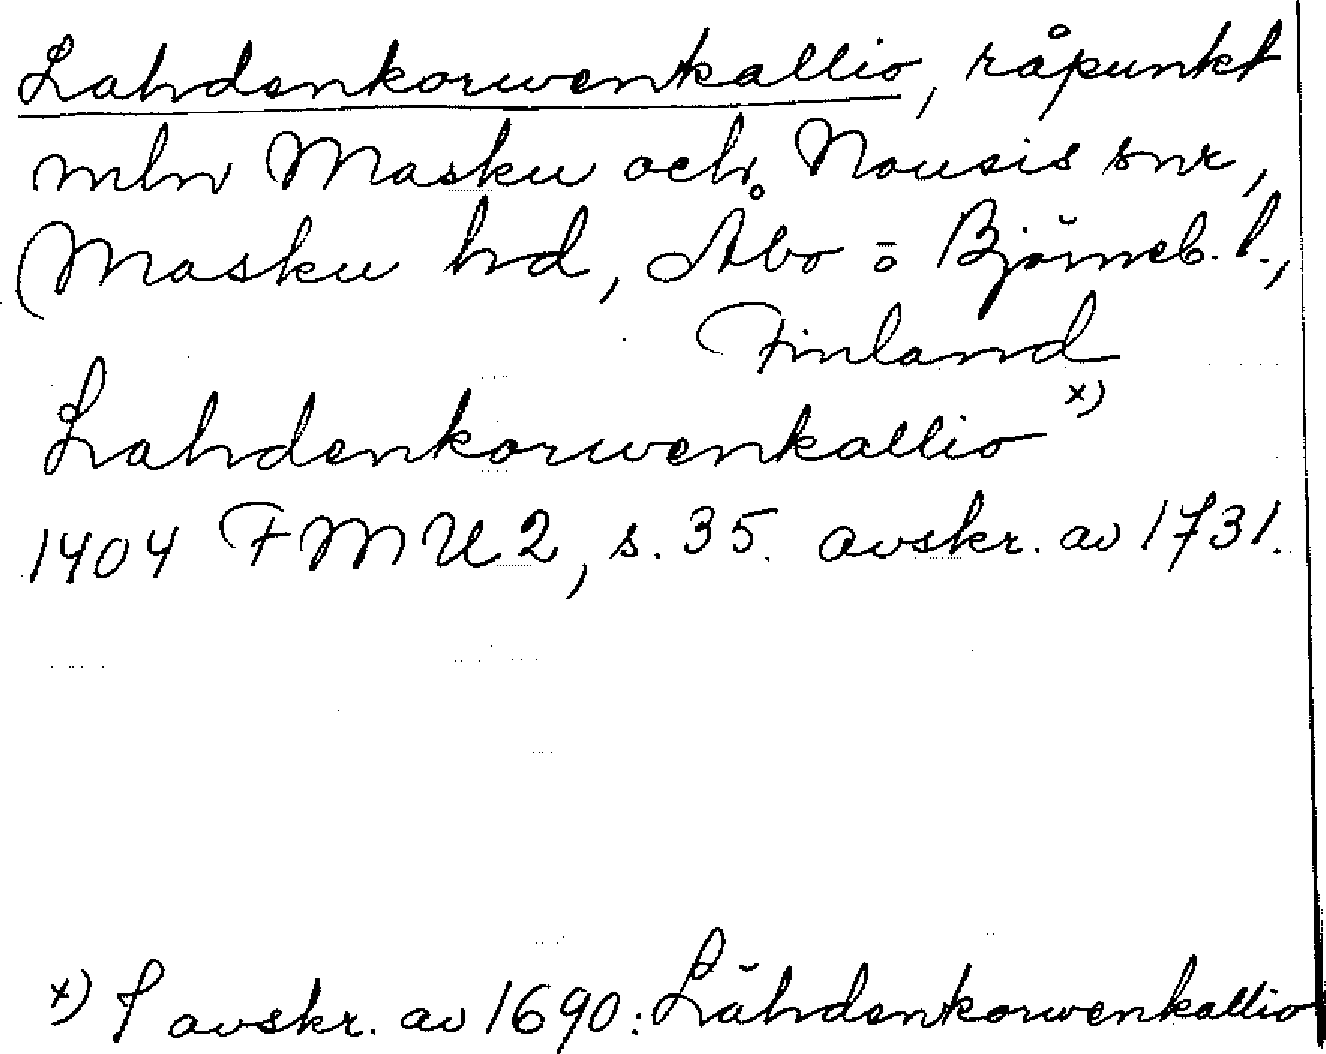 Lahdenkorwenkallio, råpunkt
mln Masku och Nousis snr,
Masku hd, Åbo o Björneb. l.,
Finland
Lahdenkorwenkallio x)
1404 FMU 2, s. 35. avskr. av 1731.
x) I avskr. av 1690: Lähdenkorwenkallio